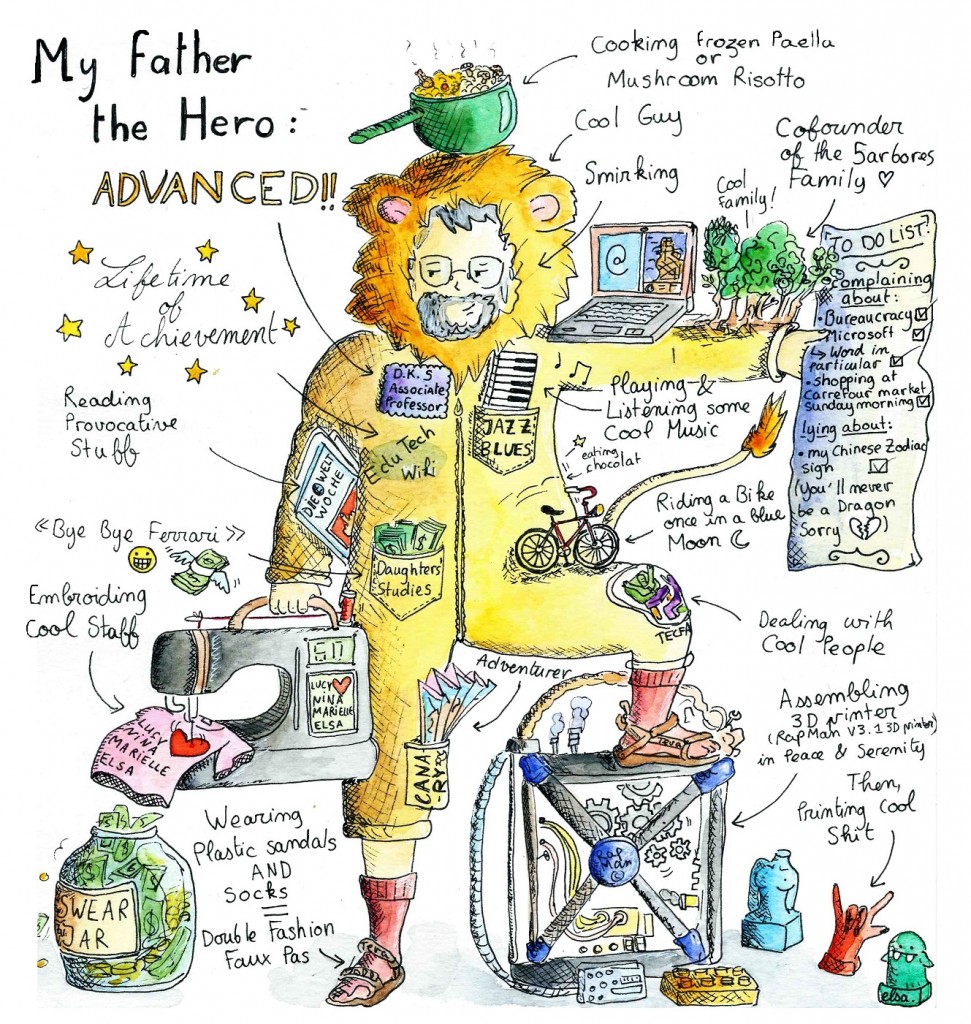 My Father
the Hero:
ADVANCED!!
Lifetime
of
Achievement
Reading
Provocative
Stuff
«Bye Bye Ferrari»
Embroiding
Cool Staff
Cooking frozen Paella
or
Mushroom Risotto
Cool Guy
Smirking
Cofounder
of the 5arbores
Family ♡
Cool
Family!
@
TO DO LIST:
Complaining
about:
• Bureaucracy ☑
• Microsoft ☑
↳ Word in
particular ☑
• shopping at
carrefour market
sunday morning ☑
lying about:
• my Chinese Zodiac
sign ☑
(You'll never
be a Dragon
Sorry 💔)
D.K.S
Associate
Professor
Edu Tech
Wiki
JAZZ
BLUES
Playing &
Listening some
Cool Music
eating
chocolat
DIE WELT
WOCHE
Riding a Bike
once in a blue
Moon ☾
Daughters'
Studies
TECFA
Dealing with
Cool People
Adventurer
CANA
RY
LUCY ♥
NINA
MARIELLE
ELSA
LUCY
NINA
MARIELLE
ELSA
Assembling
3D printer
(RapMan V3.1 3D printer)
in Peace & Serenity
Then,
Printing Cool
Shit
Teva
Rap
Man
©
Wearing
Plastic sandals
AND
Socks
=
Double Fashion
Faux Pas
SWEAR
JAR
elsa.